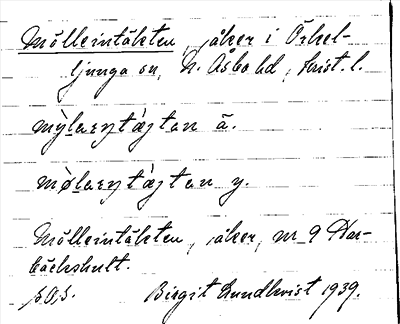 Mölleintäkten, åker i Örkel-
ljunga sn, N. Åsbo hd, Krist. l.
mỳlaɛntäjtan ä.
møl​aɛntäjtan y.
Mölleintäkten, åker, nr 9 Har-
bäckshult.
Birgit Lundkvist 1939.